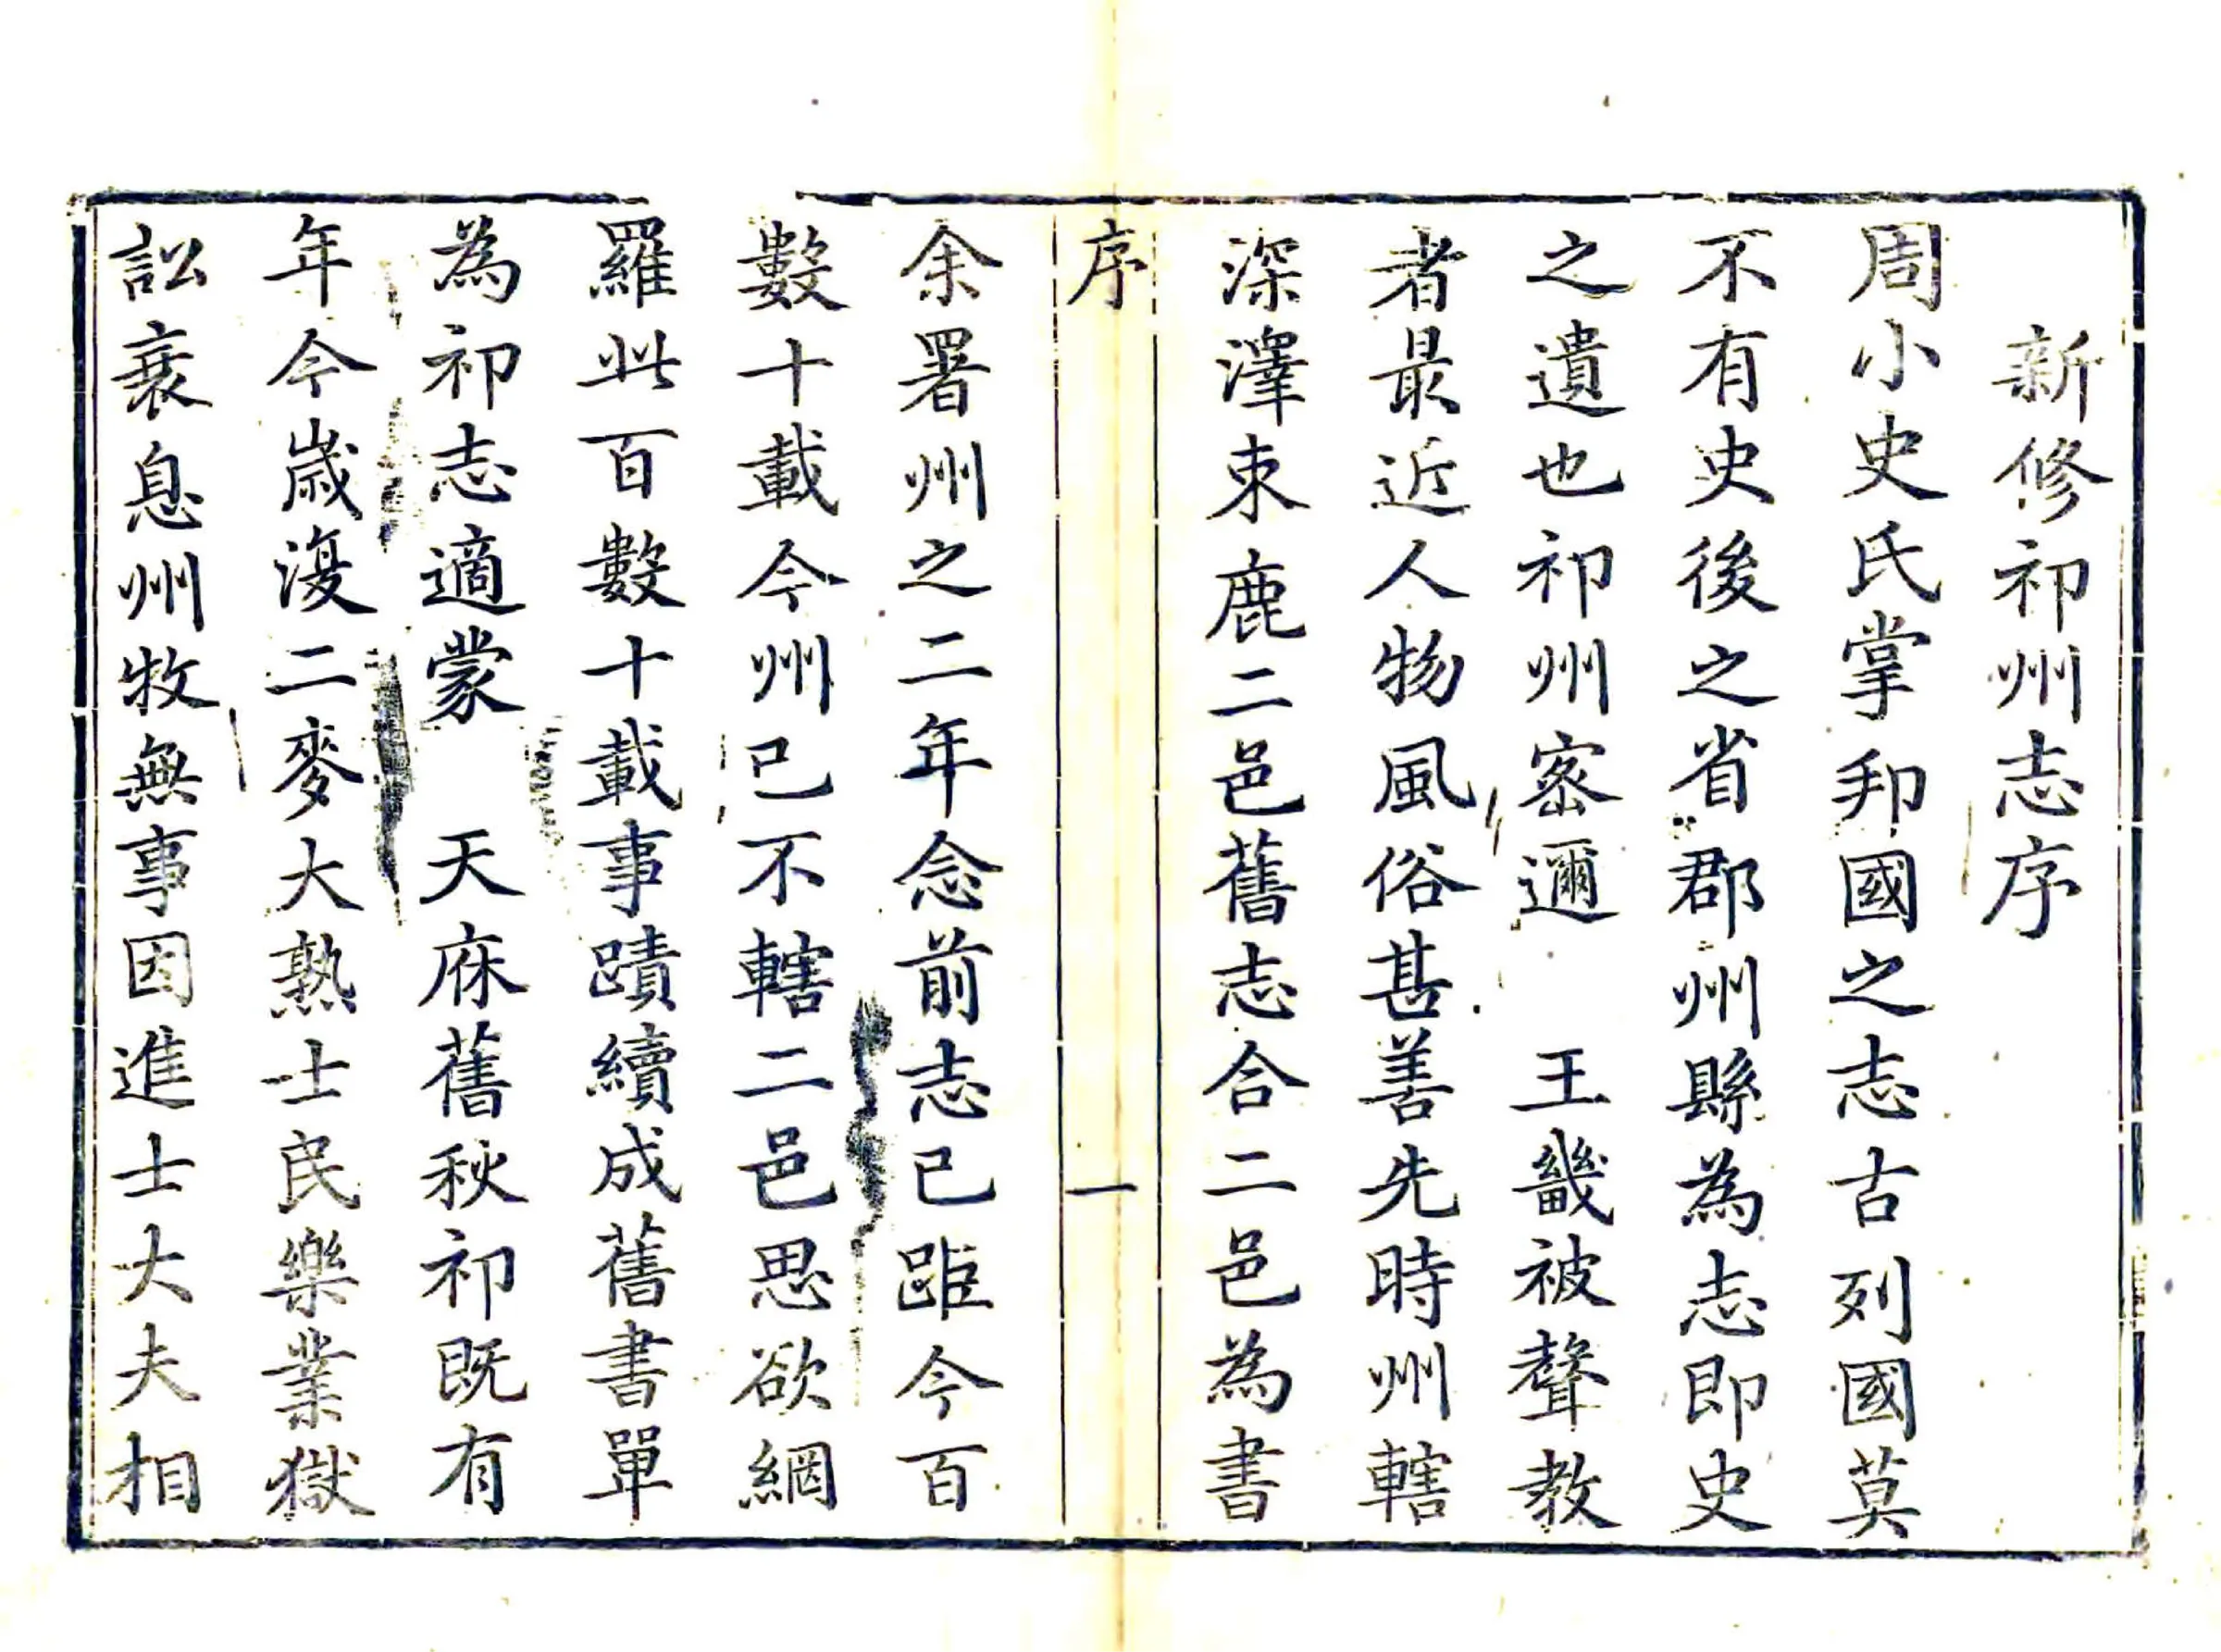 新修祁州志序
周小史氏掌邦國之志古列國莫
不有史後之省郡州縣為志即史
之遺也祁州密邇 王畿被聲教
者最近人物風俗甚善先時州轄
深澤束鹿二邑舊志合二邑為書
序 一
余署州之二年念前志已距今百
數十載今州已不轄二邑思欲網
羅此百數十載事蹟續成舊書單
為祁志適蒙 天庥舊秋祁既有
年今歲復二麥大熟士民樂業獄
訟衰息州牧無事因進士大夫相